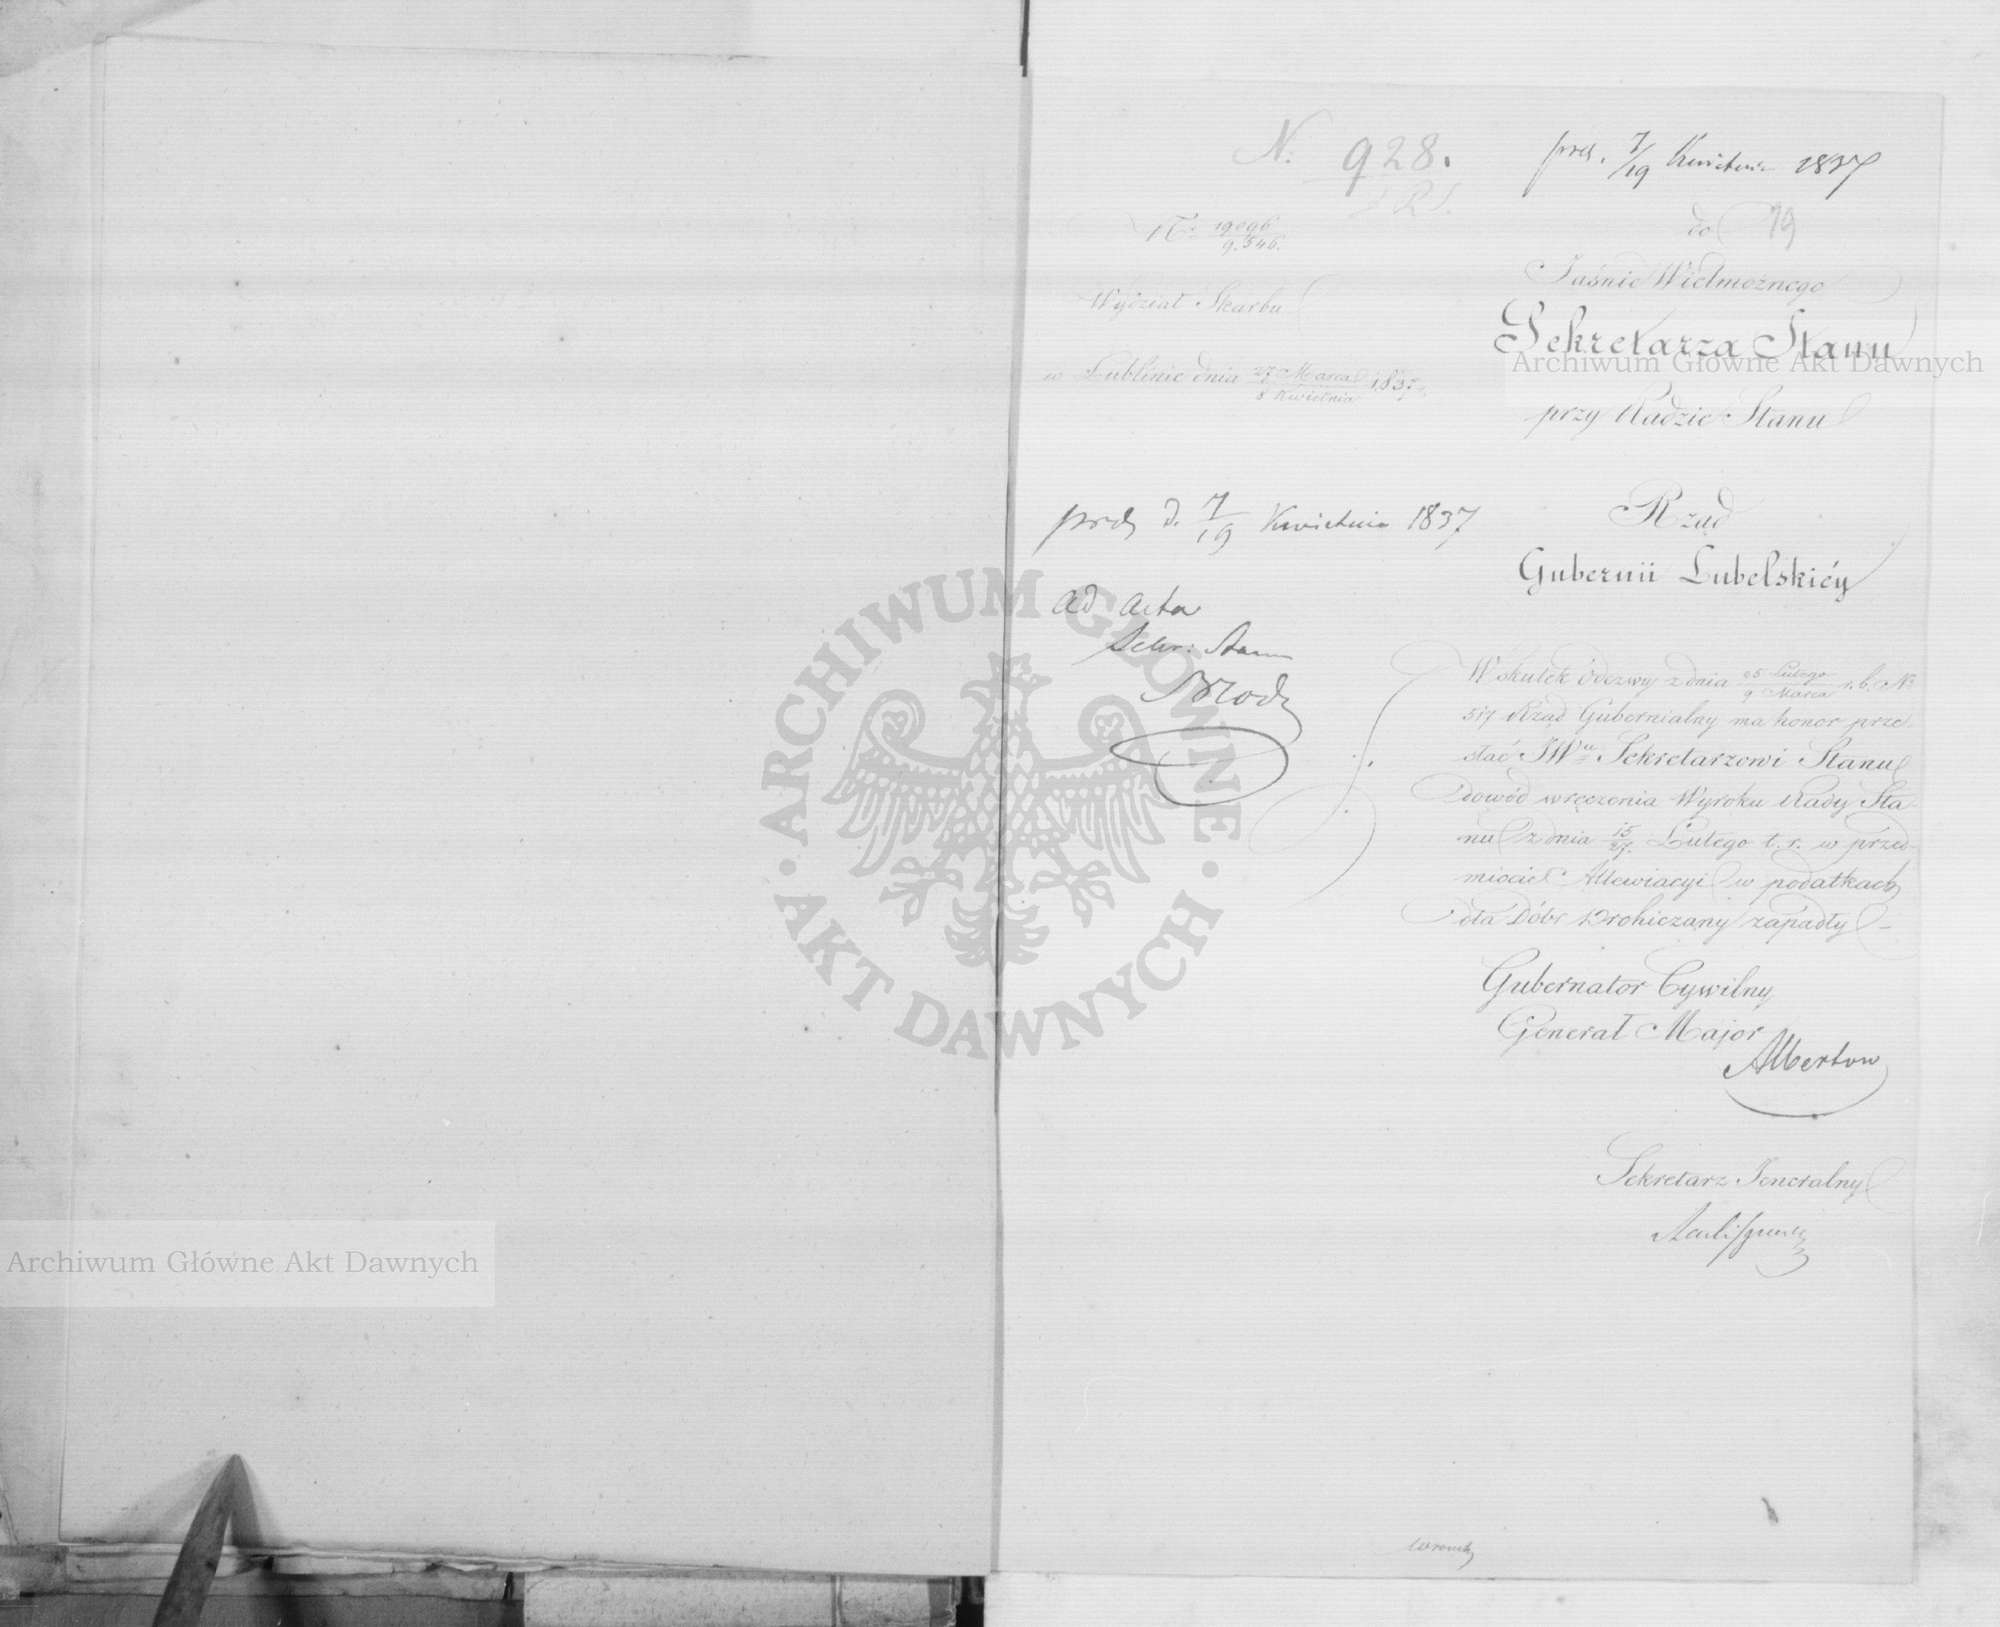 N: 928.
R S.
prd. 7/19 Kwietnia 1837
N: 19096/9.546.
do 79
Jaśnie Wielmożnego
Wydział Skarbu
Sekretarza Stanu
w Lublinie dnia 27 Marca/8 Kwietnia 1837 r.
przy Radzie Stanu
prd. d. 7/19 Kwietnia 1837
Rząd
Gubernii Lubelskiéy
ad acta
Sekr: Stanu
Brodz
Wskutek Odezwy z dnia 25 Lutego/9 Marca r. b. No
517 Rząd Gubernialny ma honor prze-
słać JWu Sekretarzowi Stanu
dowód wręczenia Wyroku Rady Sta-
nu z dnia 15/27. Lutego t. r. w przed-
miocie Allewiacyi w podatkach
dla Dóbr Drohiczany zapadły
Gubernator Cywilny
Generał Major
Albertow
Sekretarz Jeneralny
Archiwum Główne Akt Dawnych
Archiwum Główne Akt Dawnych
ARCHIWUM GŁÓWNE · AKT DAWNYCH ·